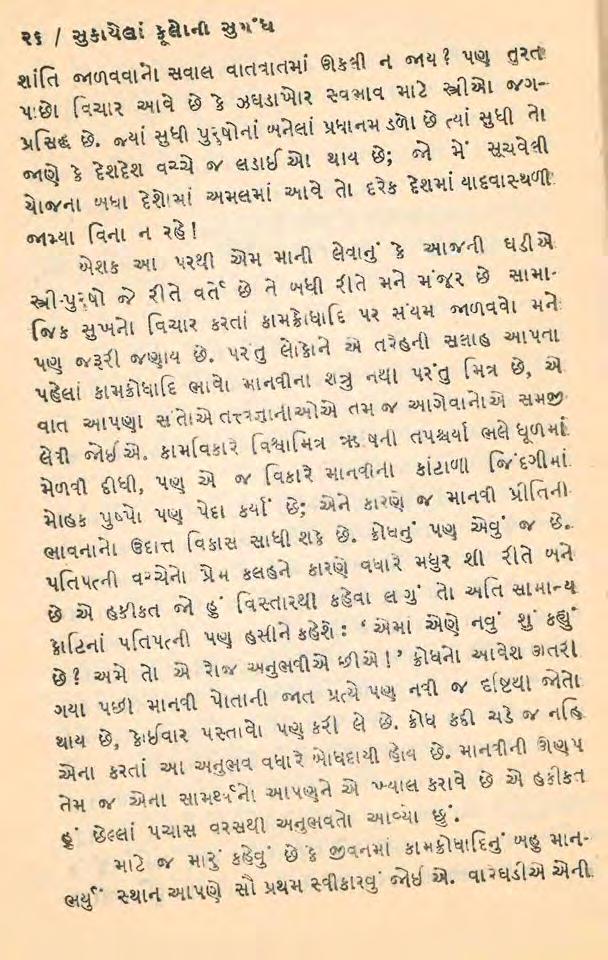 ૨૬ / સુકાયેલાં ફૂલોની સુગંધ
શાંતિ જાળવવાનો સવાલ વાતવાતમાં ઊકલી ન જાય? પણ તુરત
પાછો વિચાર આવે છે કે ઝઘડાખોર સ્વભાવ માટે સ્ત્રીઓ જગ-
પ્રસિદ્ધ છે. જ્યાં સુધી પુરુષોનાં બનેલાં પ્રધાનમંડળો છે ત્યાં સુધી તો
જાણે કે દેશદેશ વચ્ચે જ લડાઈઓ થાય છે; જો મેં સૂચવેલી
યોજના બધા દેશોમાં અમલમાં આવે તો દરેક દેશમાં યાદવાસ્થળી
જામ્યા વિના ન રહે!
બેશક આ પરથી એમ માની લેવાનું કે આજની ઘડીએ
સ્ત્રી-પુરુષો જે રીતે વર્તે છે તે બધી રીતે મને મંજૂર છે સામા-
જિક સુખનો વિચાર કરતાં કામક્રોધાદિ પર સંયમ જાળવવો મને
પણ જરૂરી જણાય છે. પરંતુ લોકોને એ તરેહની સલાહ આપતા
પહેલાં કામક્રોધાદિ ભાવો માનવીના શત્રુ નથી પરંતુ મિત્ર છે, એ
વાત આપણા સંતોએ તત્ત્વજ્ઞાનીઓએ તેમ જ આગેવાનોએ સમજી
લેવી જોઈએ. કામવિકારે વિશ્વામિત્ર ઋષિની તપશ્ચર્યા ભલે ધૂળમાં
મેળવી દીધી, પણ એ જ વિકારે માનવીના કાંટાળા જિંદગીમાં
મોહક પુષ્પો પણ પેદા કર્યાં છે; એને કારણે જ માનવી પ્રીતિની
ભાવનાનો ઉદાત્ત વિકાસ સાધી શકે છે. ક્રોધનું પણ એવું જ છે.
પતિપત્ની વચ્ચેનો પ્રેમ કલહને કારણે વધારે મધુર શી રીતે બને
છે એ હકીકત જો હું વિસ્તારથી કહેવા લાગું તો અતિ સામાન્ય
કોટિનાં પતિપત્ની પણ હસીને કહેશે : ‘એમાં એણે નવું શું કહ્યું
છે? અમે તો એ રોજ અનુભવીએ છીએ!’ ક્રોધનો આવેશ ઊતરી
ગયા પછી માનવી પોતાની જાત પ્રત્યે પણ નવી જ દૃષ્ટિથી જોતો
થાય છે, કોઈવાર પસ્તાવો પણ કરી લે છે. ક્રોધ કદી ચડે જ નહિ
એના કરતાં આ અનુભવ વધારે બોધદાયી હોય છે. માનવીની ઊણપ
તેમ જ એના સામર્થ્યનો આપણને એ ખ્યાલ કરાવે છે એ હકીકત
હું છેલ્લાં પચાસ વરસથી અનુભવતો આવ્યો છું.
માટે જ મારું કહેવું છે કે જીવનમાં કામક્રોધાદિનું બહુ માન-
ભર્યું સ્થાન આપણે સૌ પ્રથમ સ્વીકારવું જોઈએ. વારેઘડીએ એની